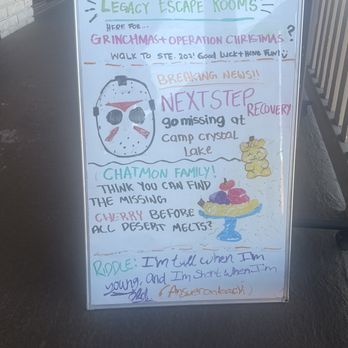 LEGACY ESCAPE ROOMS
HERE FOR...
GRINCHMAS + OPERATION CHRISTMAS?
WALK TO STE. 202! Good Luck + HAVE FUN!
BREAKING NEWS!!
NEXT STEP RECOVERY
go missing at
camp crystal
Lake
CHATMON FAMILY!
THINK YOU CAN FIND
THE MISSING
CHERRY BEFORE
ALL DESERT MELTS?
RIDDLE: I'm tall when I'm
young, and I'm short when I'm
old.
(Answer on back!)